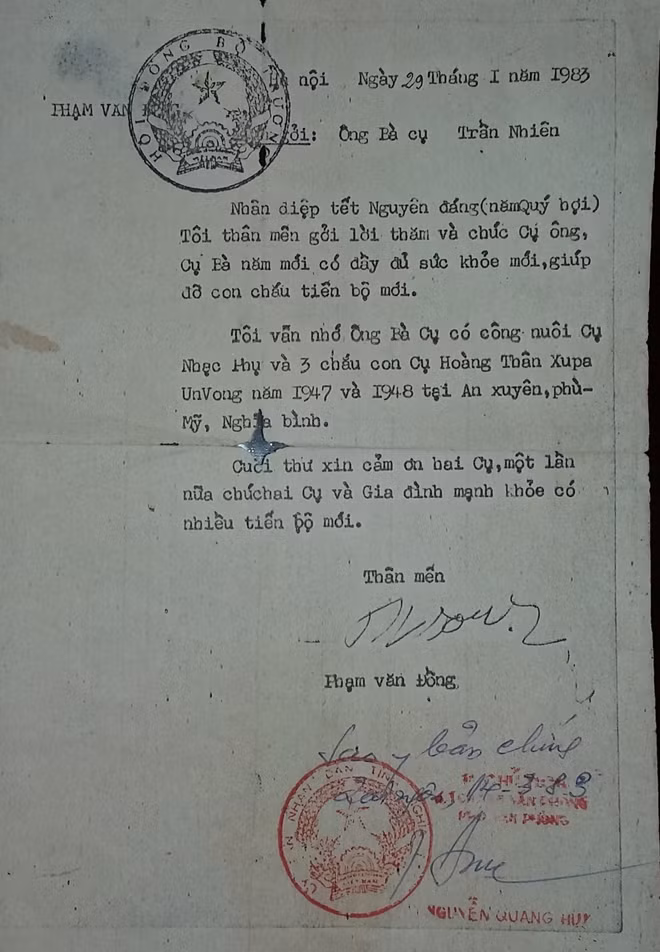 HỘI ĐỒNG BỘ TRƯỞNG
nội Ngày 29 Tháng I năm I983
PHẠM VĂN
ởi: Ông Bà cụ Trần Nhiên
Nhân diệp tết Nguyên đáng(nămQuý hợi)
Tôi thân mến gởi lời thăm và chúc Cụ ông,
Cụ Bà năm mới có đầy đủ sức khỏe mới,giúp
đỡ con cháu tiến bộ mới.
Tôi vẫn nhớ Ông Bà Cụ có công nuôi Cụ
Nhạc Phụ và 3 cháu con Cụ Hoàng Thân Xupa
UnVong năm I947 và I948 tại An xuyên,phù-
Mỹ, Nghĩa bình.
Cuối thư xin cảm ơn hai Cụ,một lần
nữa chúchai Cụ và Gia đình mạnh khỏe có
nhiều tiến bộ mới.
Thân mến
Phạm văn Đồng
Sao y bản chính
14-3-83
VĂN PHÒNG
VĂN PHÒNG
NHÂN DÂN TỈNH NGHĨA
NGUYỄN QUANG HUY